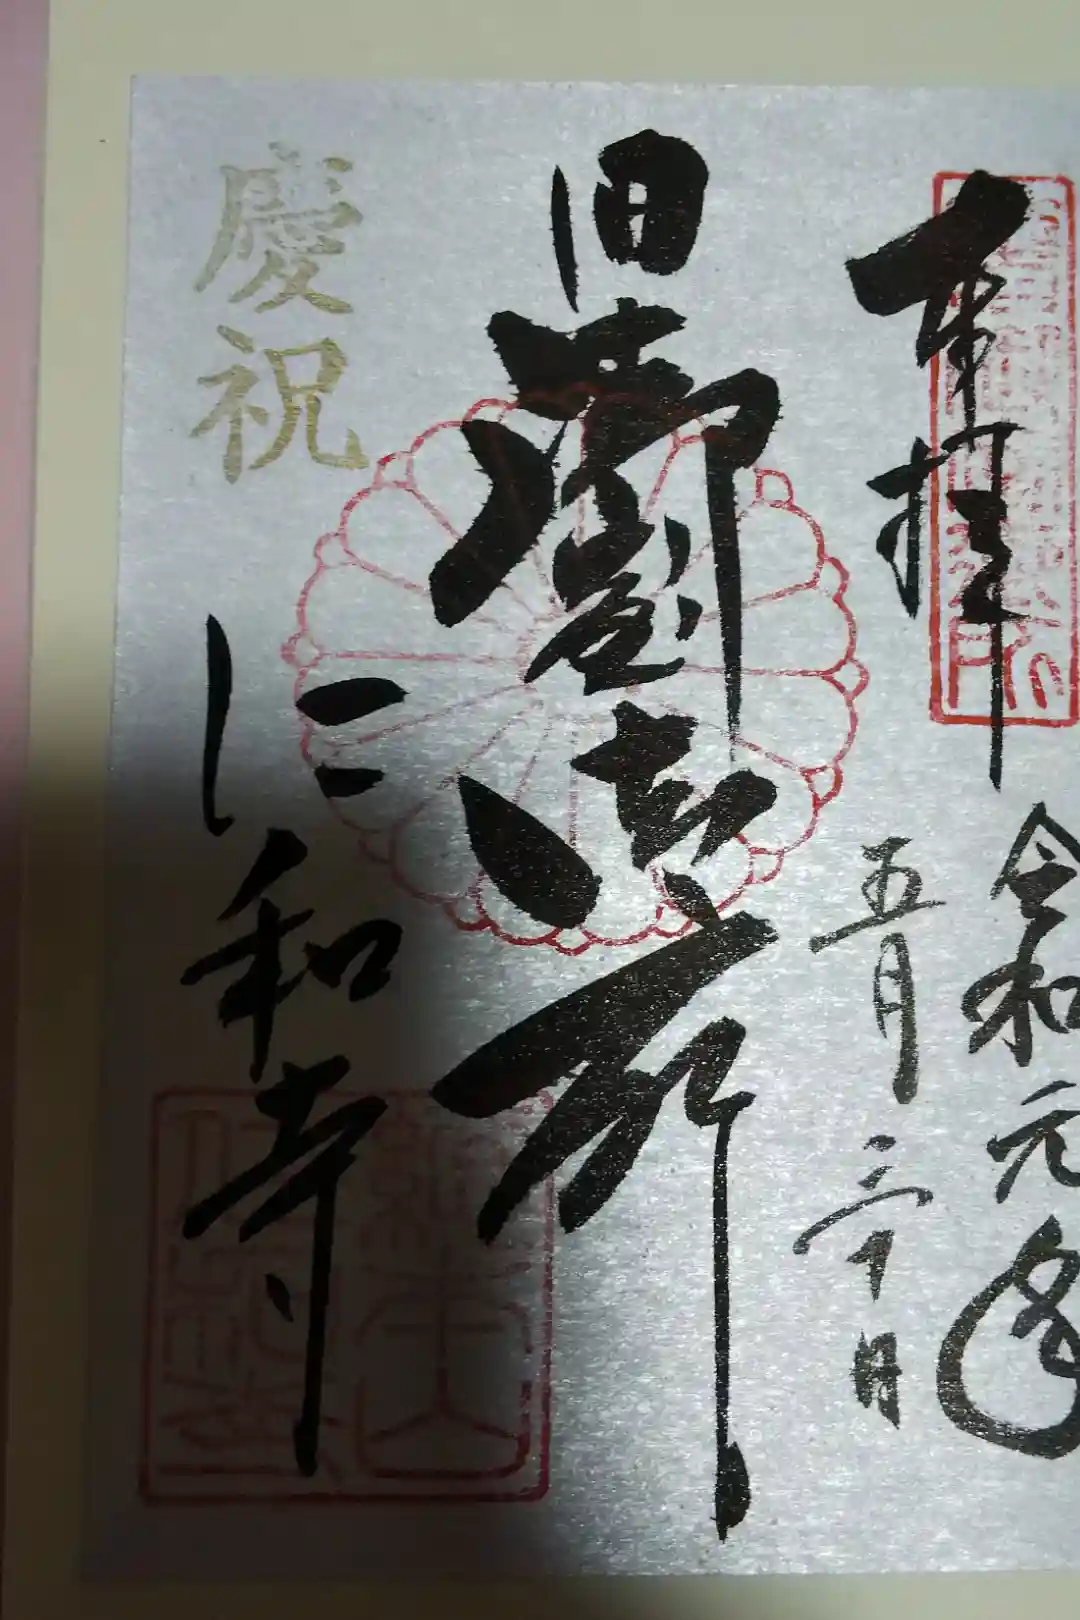 奉拝
令和元年
五月三十日
旧御室御所
慶祝
仁和寺